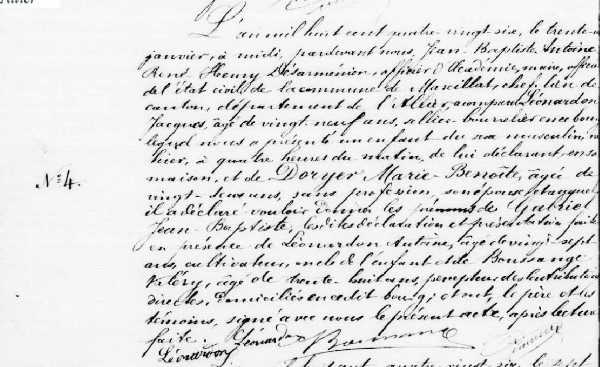 L'an mil huit cent quatre vingt six, le trente
janvier, à midi, pardevant nous, Jean Baptiste Antoine
René Henry Désarménien, officier d'Académie, maire, officier
de l'état civil de la commune de Marcillat, chef-lieu de
canton, département de l'Allier, a comparu Léonardon
Jacques, âgé de vingt-neuf ans, bourrelier en ce bourg
lequel nous a présenté un enfant du sexe masculin, né
hier, à quatre heures du matin, de lui déclarant, en sa
N° 4. maison, et de Doryer Marie-Benoîte, âgée de
ans, sans profession, son épouse, et auquel
il a déclaré vouloir donner les prénoms de Gabriel
Jean Baptiste, lesdites déclaration et présentation faites
en présence de Léonardon Antoine, âgé de vingt-sept
ans, cultivateur, oncle de l'enfant et de Boussange
Valéry, âgé de trente-huit ans, percepteur des Contributions
directes, domiciliés en cedit bourg; et ont, le père et les
témoins, signé avec nous le présent acte, après lecture
faite. Léonardon
Léonardon
quatre vingt six, le sept